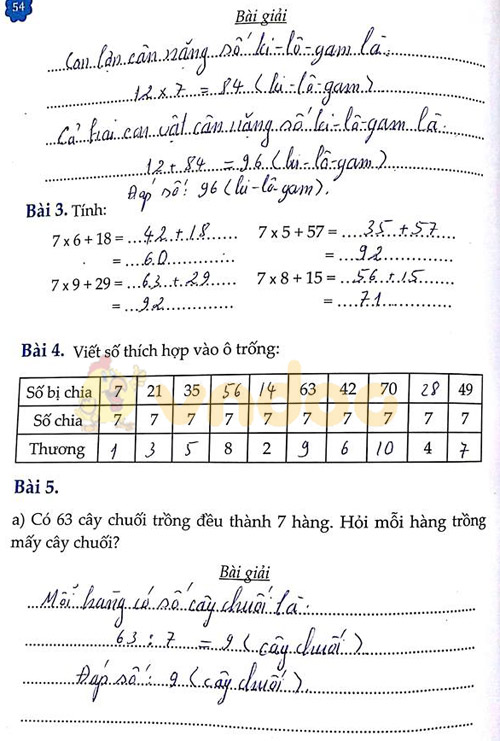 54
Bài giải
Con lợn cân nặng số ki-lô-gam là:
12 x 7 = 84 (ki-lô-gam)
Cả hai con vật cân nặng số ki-lô-gam là:
12 + 84 = 96 (ki-lô-gam)
Đáp số: 96 (ki-lô-gam).
Bài 3. Tính:
7 x 6 + 18 = 42 + 18 7 x 5 + 57 = 35 + 57
= 60 = 92
7 x 9 + 29 = 63 + 29 7 x 8 + 15 = 56 + 15
= 92 = 71
Bài 4. Viết số thích hợp vào ô trống:
Số bị chia 7 21 35 56 14 63 42 70 28 49
Số chia 7 7 7 7 7 7 7 7 7 7
Thương 1 3 5 8 2 9 6 10 4 7
vndoc
Bài 5.
a) Có 63 cây chuối trồng đều thành 7 hàng. Hỏi mỗi hàng trồng
mấy cây chuối?
Bài giải
Mỗi hàng có số cây chuối là:
63 : 7 = 9 (cây chuối)
Đáp số: 9 (cây chuối)